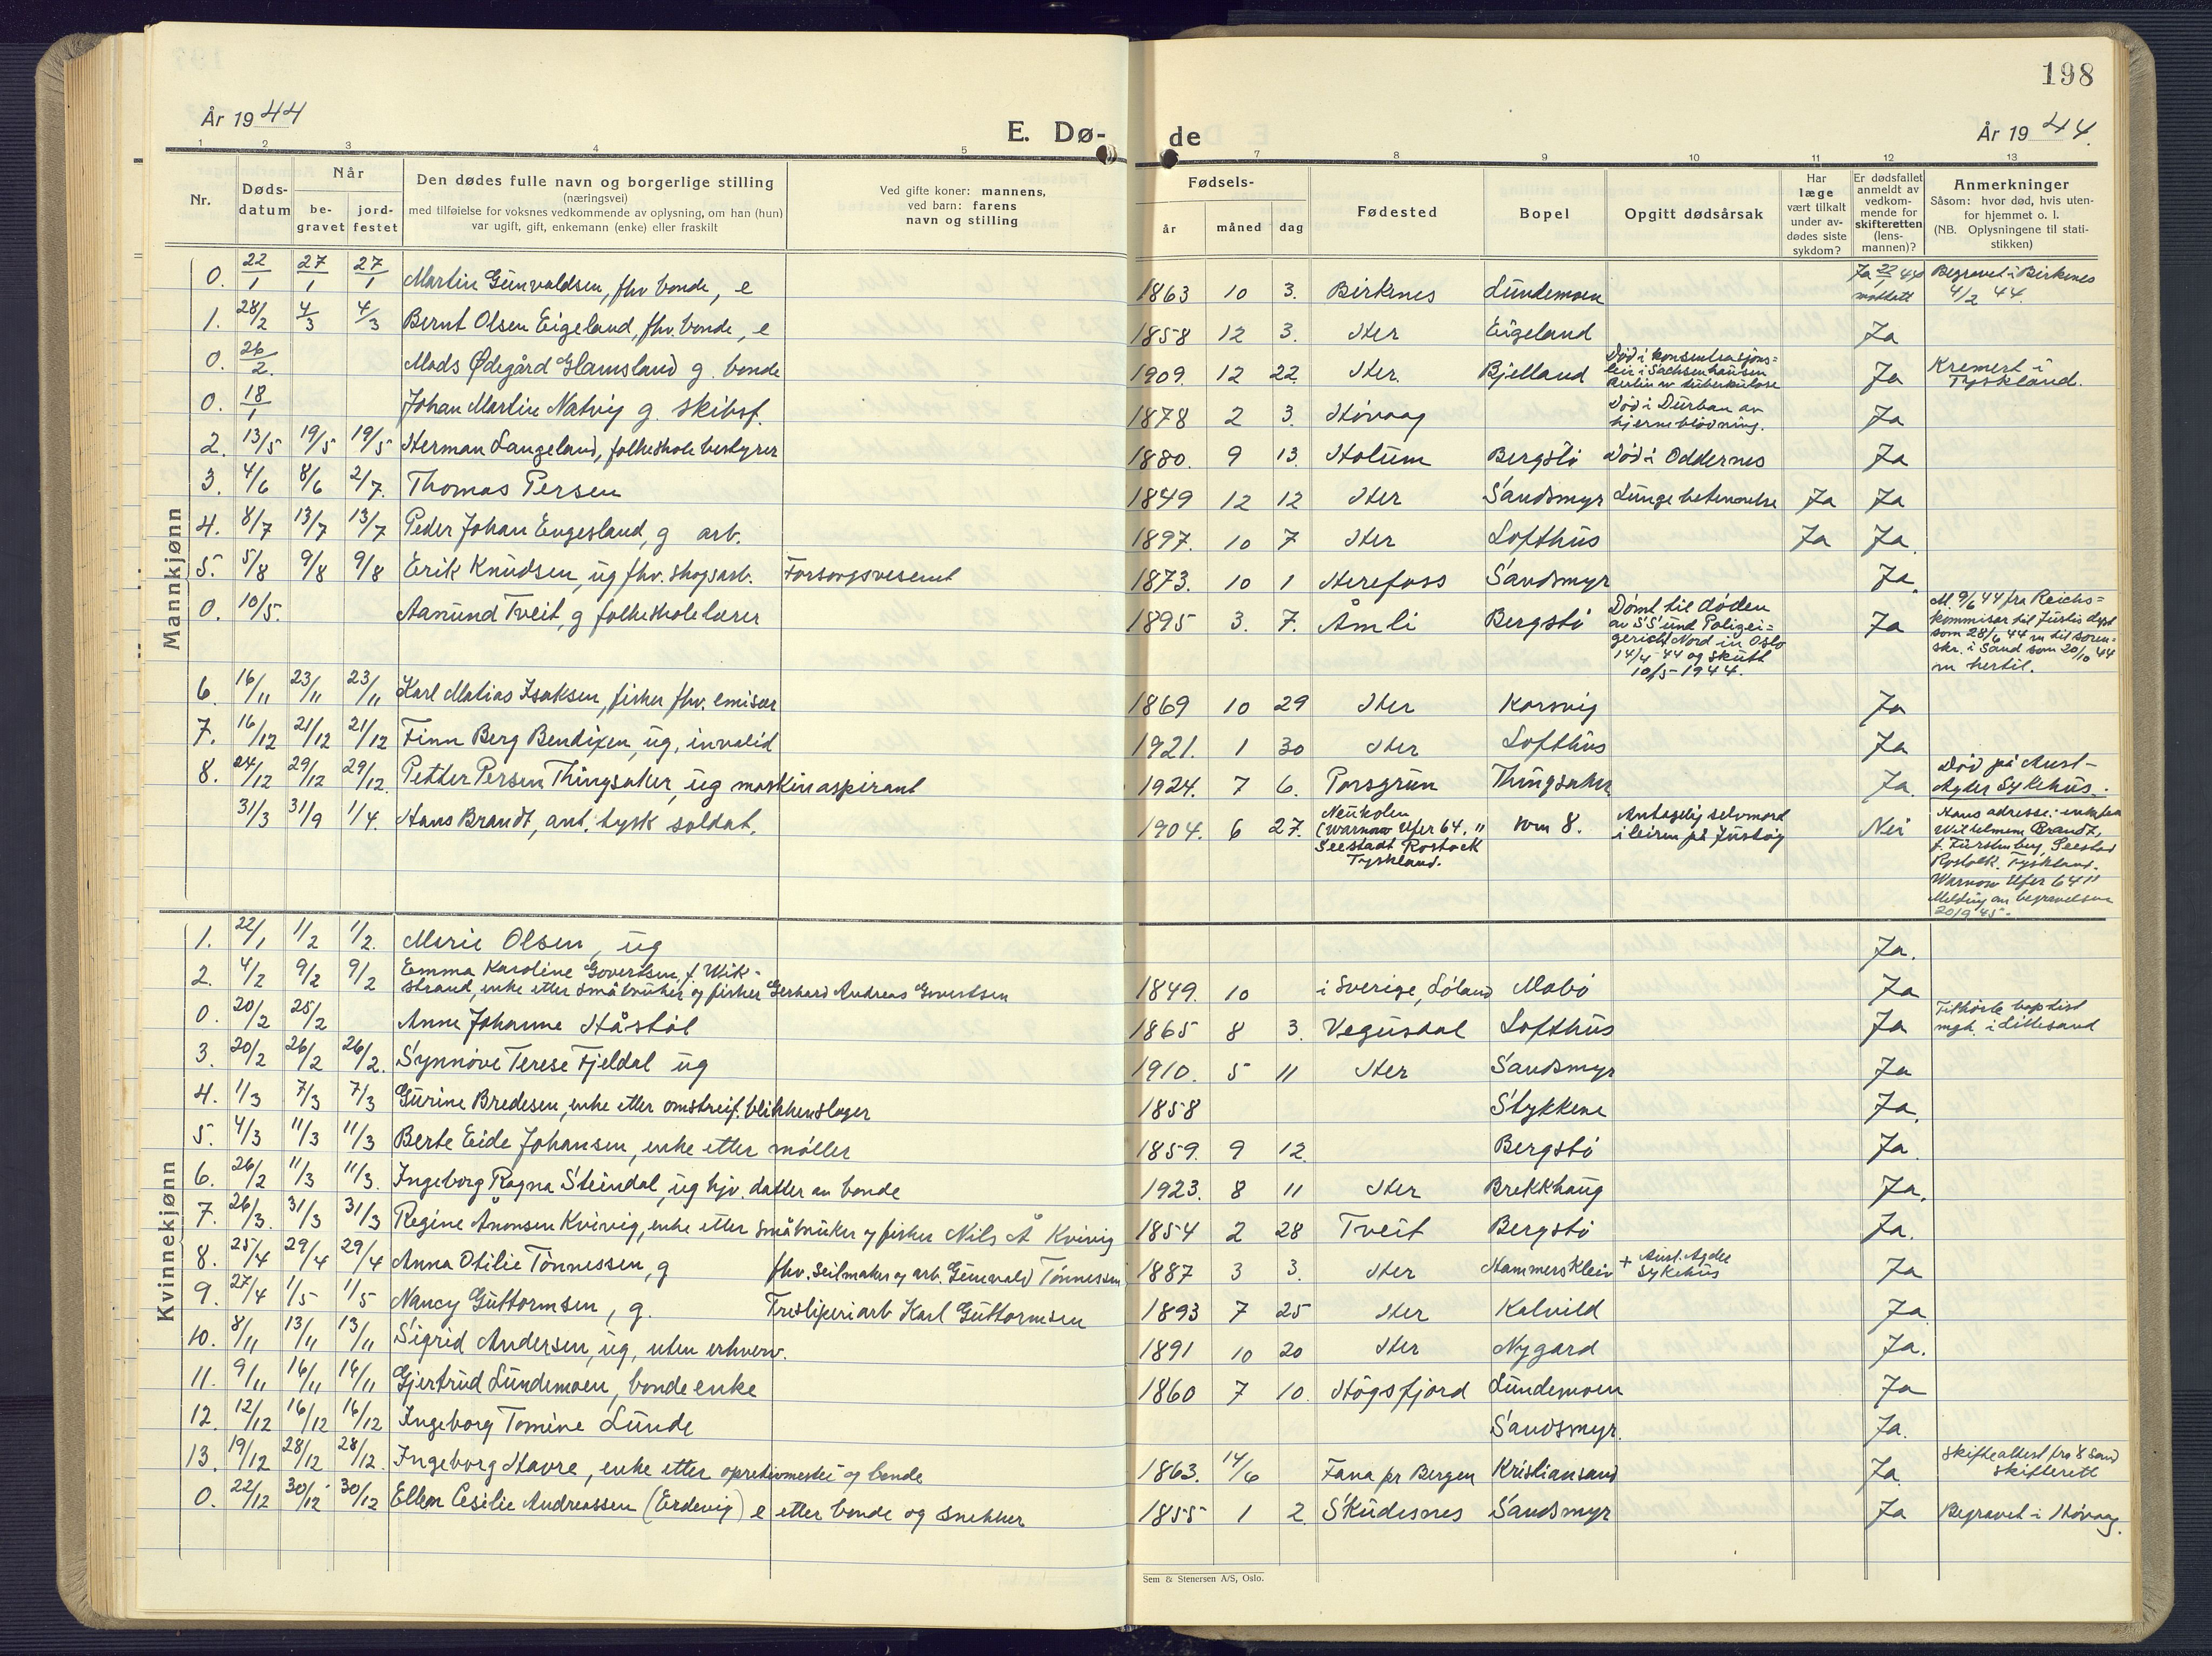 198
År 1944
E. Dø-
de
År 1944.
1 2 3 4 5 7 8 9 10 11 12 13
Nr.
Døds-
datum
Når
be-
gravet
jord-
festet
Den dødes fulle navn og borgerlige stilling
(næringsvei)
med tilføielse for voksnes vedkommende av oplysning, om han (hun)
var ugift, gift, enkemann (enke) eller fraskilt
Ved gifte koner: mannens,
ved barn: farens
navn og stilling
Fødsels-
år måned dag
Fødested
Bopel
Opgitt dødsårsak
Har
læge
vært tilkalt
under av-
dødes siste
sykdom?
Er dødsfallet
anmeldt av
vedkom-
mende for
skifteretten
(lens-
mannen)?
Anmerkninger
Såsom: hvor død, hvis uten-
for hjemmet o. l.
(NB. Oplysningene til stati-
stikken)
Mannkjønn
0. 22/1 27/1 27/1 Martin Gunvaldsen, fhv bonde, e 1863 10 3. Birknes Lundemoen Ja 22/1 44 mottatt Begravet i Birkenes 4/2 44.
1. 28/2 4/3 4/3 Bernt Olsen Eigeland, fhv. bonde, e 1858 12 3. Her Eigeland Ja
0. 26/2. Mads Ødegård Glamsland g. bonde 1909 12 22 Her. Bjelland Død i konsentrasjons=
leir i Sachsenhausen
Berlin av tuberkulose Ja Kremert i
Tyskland.
0. 18/1 Johan Martin Natvig g. skibsf. 1878 2 3. Høvaag Død i Durban av
hjerneblødning. Ja
2. 13/5 19/5 19/5 Herman Langeland, folkeskolebestyrer 1880. 9 13. Holum Bergstø Død i Oddernes Ja
3. 4/6 8/6 2/7. Thomas Persen 1849 12 12 Her Sandsmyr Lungebetennelse Ja Ja
4. 8/7 13/7 13/7 Peder Johan Engesland, g arb. 1897. 10 7 Her Lofthus Ja Ja.
5. 5/8 9/8 9/8 Erik Knudsen, ug fhv. skogsarb. Forsorgsvesenet 1873. 10 1 Herefoss Sandsmyr Ja.
0. 10/5. Aamund Tveit, g folkeskolelærer 1895 3. 7. Åmli Bergstø Dømt til døden
av SS und Polizei=
gericht Nord in Oslo
14/4 44 og skutt
10/5-1944. Ja M. 9/6 44 fra Reichs=
kommisar til Justisdept
som 28/6 44 m til soren=
skr. i Sand som 20/10 44
m hertil.
6. 16/11 23/11 23/11 Karl Matias Isaksen, fisker fhv. emisær 1869 10 29 Her Korsvig Ja
7. 16/12 21/12 21/12 Finn Berg Bendixen, ug, invalid 1921. 1 30 Her Lofthus Ja
8. 24/12 29/12 29/12. Petter Persen Thingsaker, ug maskinaspirant 1924. 7 6. Porsgrun Thingsaker Ja. Død på Aust-
Agder Sykehus.
31/3 31/9 1/4. Hans Brandt, ant. tysk soldat. 1904. 6 27. Neukolen
(Warnow Ufer 64. "
Seestadt Rostock
Tyskland. som 8. Antagelig selvmord
i leiren på Justøy Nei Hans adresse: enkefru
Wilhelmem Brandt,
f. Fürstenberg, Seestad
Rostock. Tyskland.
Warnow Ufer 64 II
Melding om begravelsen
20/9 45.
Kvinnekjønn
1. 22/1 1/2 1/2. Marie Olsen, ug Ja.
2. 4/2 9/2 9/2 Emma Karoline Govertsen, f. Wik-
strand, enke etter småbruker og fisker Gerhard Andreas Govertsen 1849. 10 i Sverige, Løland Mabø Ja
0. 20/2 25/2 Anne Johanne Håstøl 1865 8 3. Vegusdal Lofthus Ja Tilhørte baptist
mgh. i Lillesand
3. 20/2 26/2 26/2. Synnøve Terese Fjeldal ug 1910. 5 11 Her Sandsmyr Ja
4. 1/3 7/3 7/3 Gurine Bredesen, enke etter omstreif. blikkenslager 1858 Stykkene Ja.
5. 4/3 11/3 11/3 Berte Eide Johansen, enke etter møller 1859. 9 12. Bergstø Ja.
6. 26/2 11/3 11/3. Ingeborg Ragna Steindal, ug hjv. datter av bonde 1923. 8 11 Her Brekkhaug Ja.
7. 26/3. 31/3 31/3 Regine Ånonsen Kvivig, enke etter småbruker og fisker Nils Å Kvivig 1854 2 28 Tveit Bergstø Ja.
8. 25/4 29/4 29/4 Anna Otilie Tønnessen, g fhv. seilmaker og arb. Gunvald Tønnessen 1887 3 3. Her Hammerskleiv + Aust. Agder
Sykehus Ja
9. 27/4 1/5 1/5 Nancy Guttormsen, g. Tresliperiarb Karl Guttormsen 1893 7 25 Her Kalvild Ja
10. 8/11 13/11 13/11 Sigrid Andersen, ug, uten erhverv. 1891 10 20 Her Nygard Ja.
11. 9/11 16/11 14/11 Gjertrud Lundemoen, bondeenke 1860 7 10. Høgsfjord Lundemoen Ja
12. 12/12 16/12 16/12 Ingeborg Tomine Lunde Sandsmyr. Ja.
13. 19/12 28/12 28/12. Ingeborg Havre, enke etter og bonde 1863. 14/6 Fana pr Bergen Kristiansand Ja. Skifteattest fra Sand
skifterett
0. 22/12 30/12 30/12 Ellen Cesilie Andreassen (Erdevig) e etter bonde og snekker 1855 1 2. Skudesnes Sandsmyr Ja Begravet i Høvaag.
Sem & Stenersen A/S, Oslo.